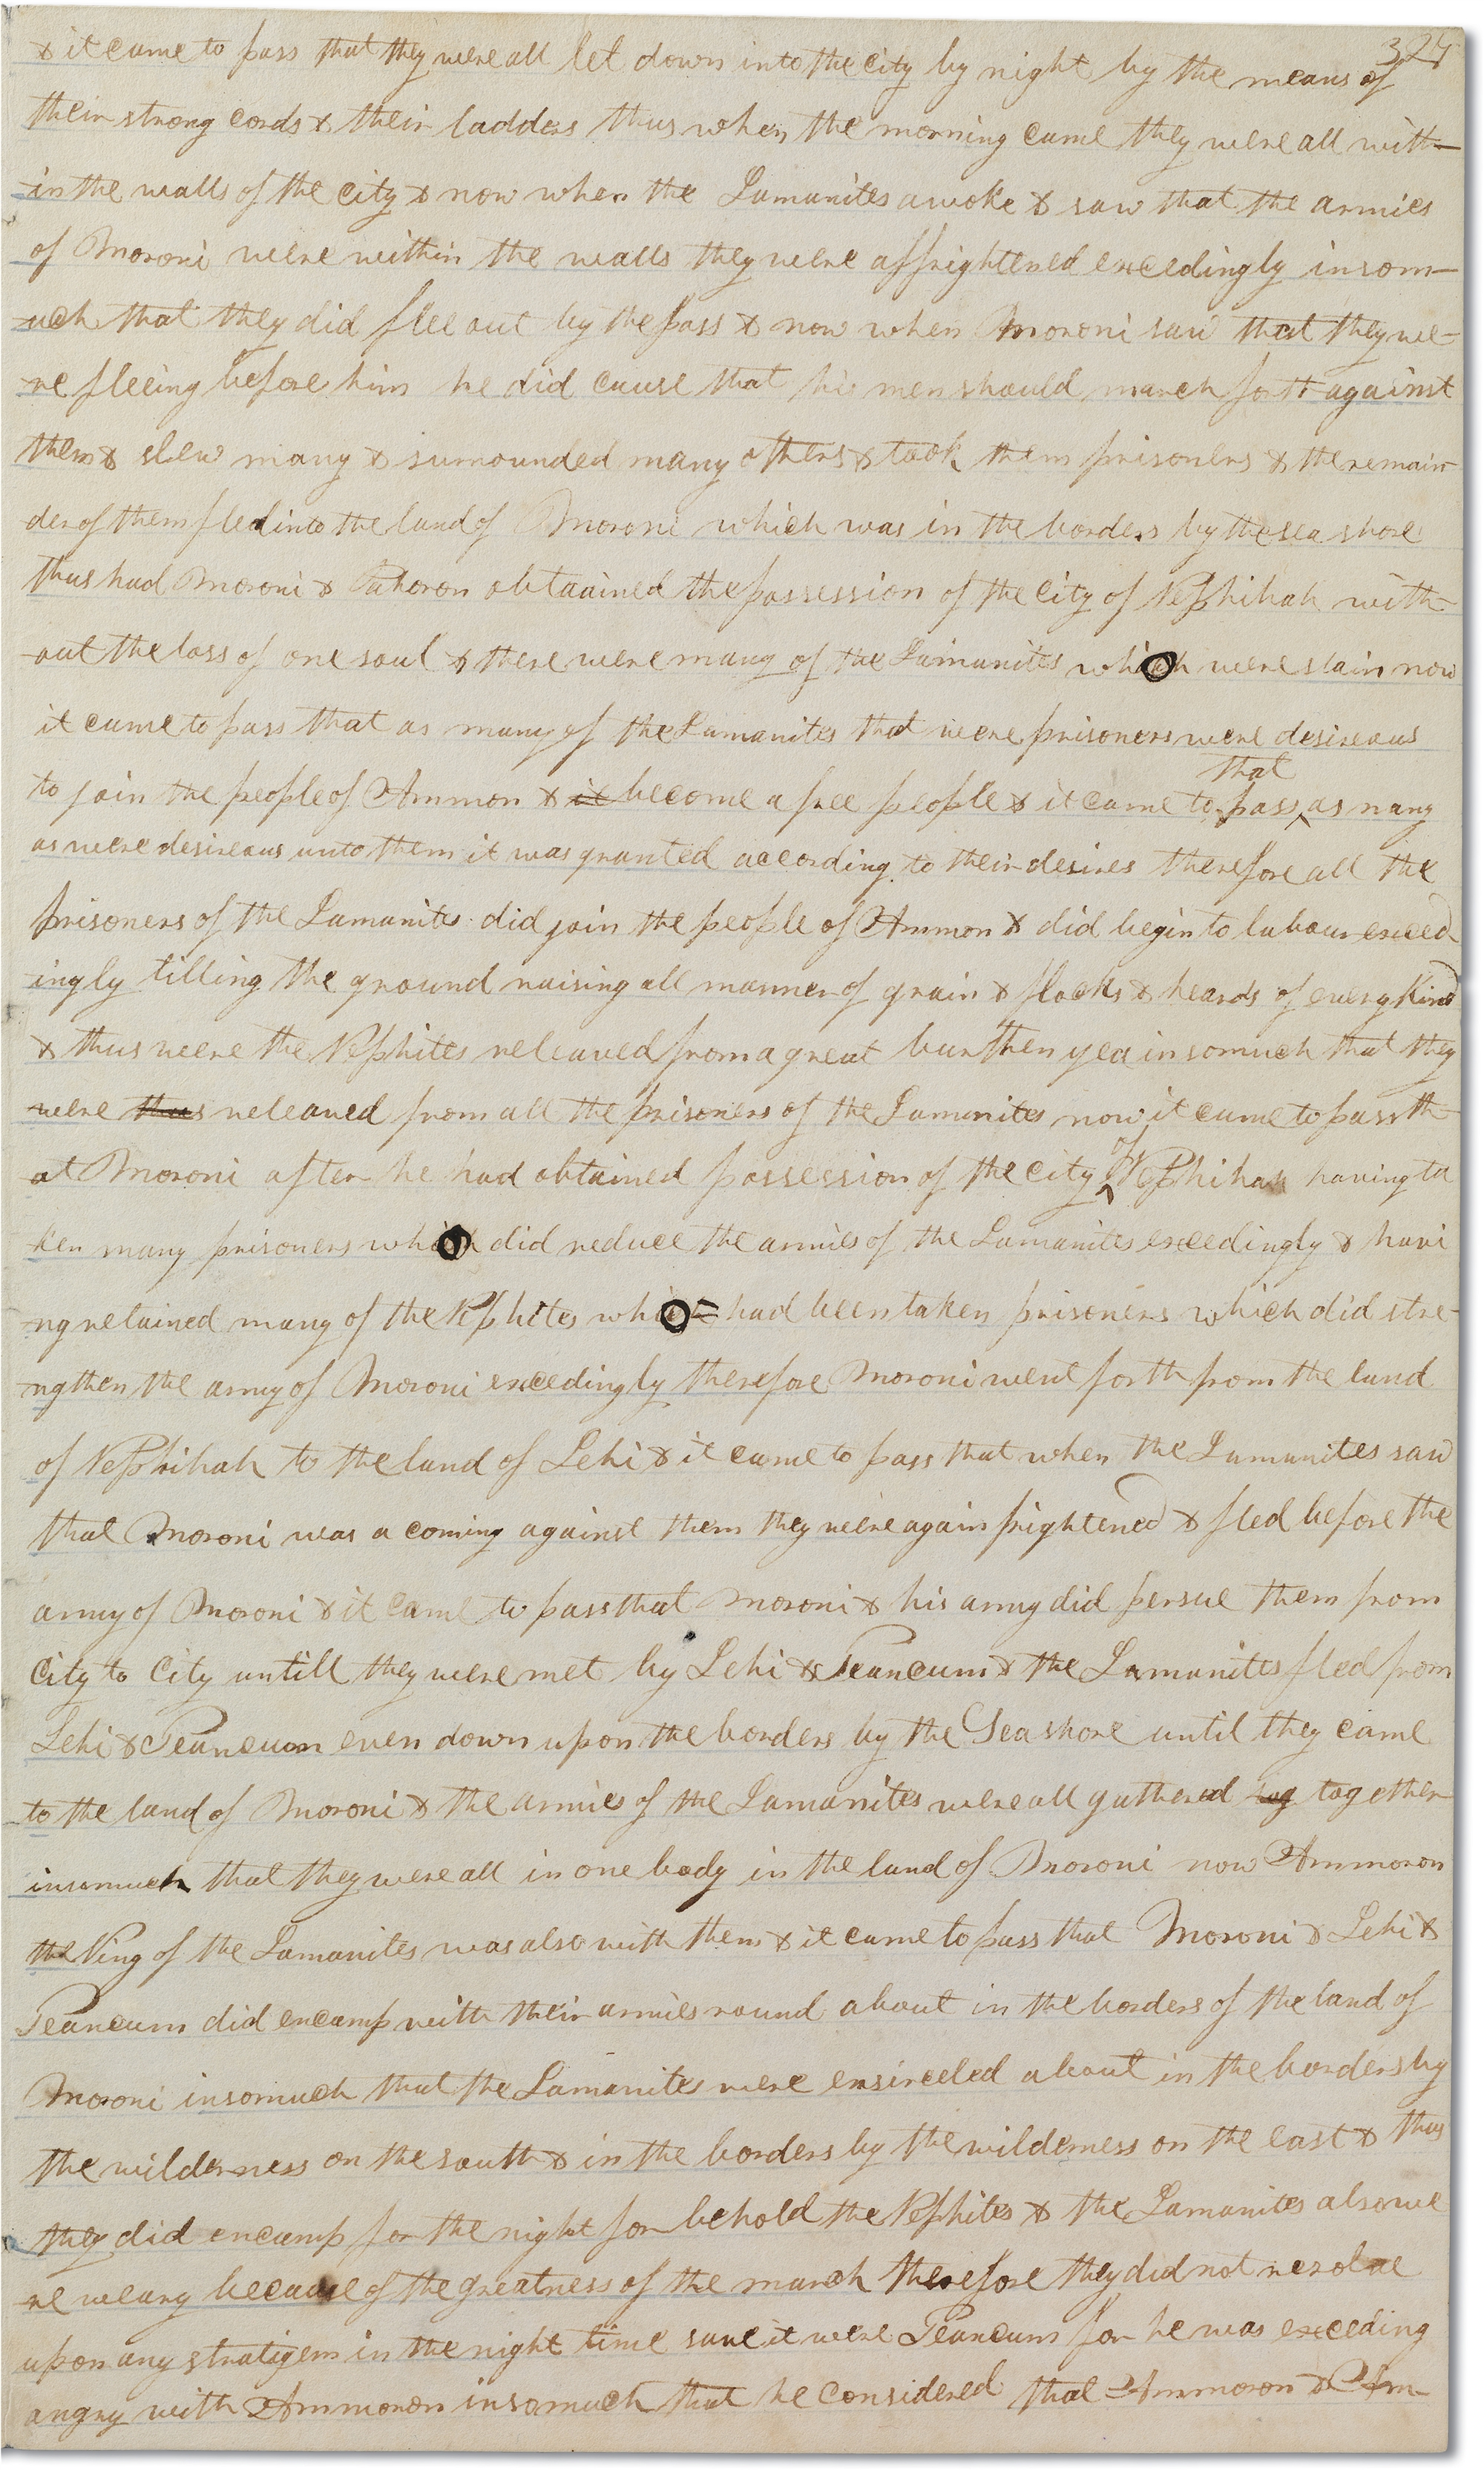 324
& it came to pass that they were all let down into the city by night by the means of
their strong cords & their ladders thus when the morning came they were all with-
-in the walls of the city & now when the Lamanites awoke & saw that the armies
of Moroni were within the walls they were affrightened exceedingly insom-
-uch that they did flee out by the pass & now when Moroni saw that they we-
-re fleeing before him he did cause that his men should march forth against
them & slew many & surrounded many others & took them prisoners & the remain-
der of them fled into the land of Moroni which was in the borders by the sea shore
thus had Moroni & Pahoron obtaained the possession of the city of Nephihah with-
-out the loss of one soul & there were many of the Lamanites which were slain now
it came to pass that as many of the Lamanites that were prisoners were desireous
that
to join the people of Ammon & it become a free people & it came to pass ^ as many
as were desireous unto them it was granted according to their desires therefore all the
prisoners of the Lamanites did join the people of Ammon & did begin to labour exceed-
-ingly tilling the ground raising all manner of grain & flocks & heards of every kind
& thus were the Nephites releaved from a great burthen yea insomuch that they
were thus releaved from all the prisoners of the Lamanites now it came to pass th-
of
at Moroni after he had obtained possession of the city ^ Nephihah having ta
ken many prisoners which did reduce the armies of the Lamanites exceedingly & havi
-ng retained many of the Nephites which had been taken prisoners which did stre-
-ngthen the army of Moroni exceedingly therefore Moroni went forth from the land
of Nephihah to the land of Lehi & it came to pass that when the Lamanites saw
that Moroni was a coming against them they were again frightened & fled before the
army of Moroni & it came to pass that Moroni & his army did persue them from
City to City untill they were met by Lehi & Teancum & the Lamanites fled from
Lehi & Teancum even down upon the borders by the Sea shore until they came
to the land of Moroni & the armies of the Lamanites were all gathered tog together
insomuch that they were all in one body in the land of Moroni now Ammoron
the King of the Lamanites was also with them & it came to pass that Moroni & Lehi &
Teancum did encamp with their armies round about in the borders of the land of
Moroni insomuch that the Lamanites were ensirceled about in the borders by
the wilderness on the south & in the borders by the wilderness on the east & thus
they did encamp for the night for behold the Nephites & the Lamanites also we
re weary because of the greatness of the march therefore they did not resolve
upon any stratigem in the night time save it were Teancum for he was exceding
angry with Ammoron insomuch that he considered that Ammoron & Am-